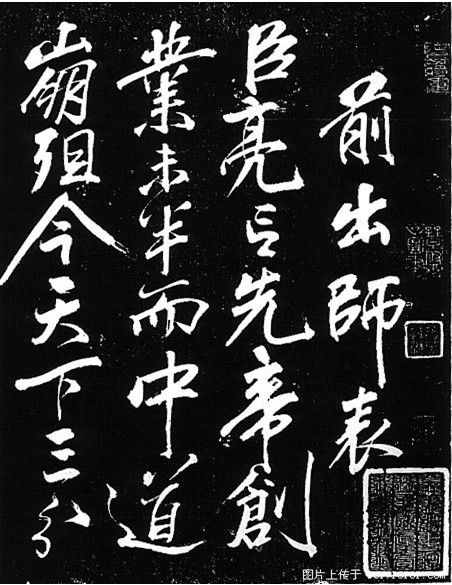 前出師表
臣亮言先帝創
業未半而中道
崩殂今天下三分
图片上传于